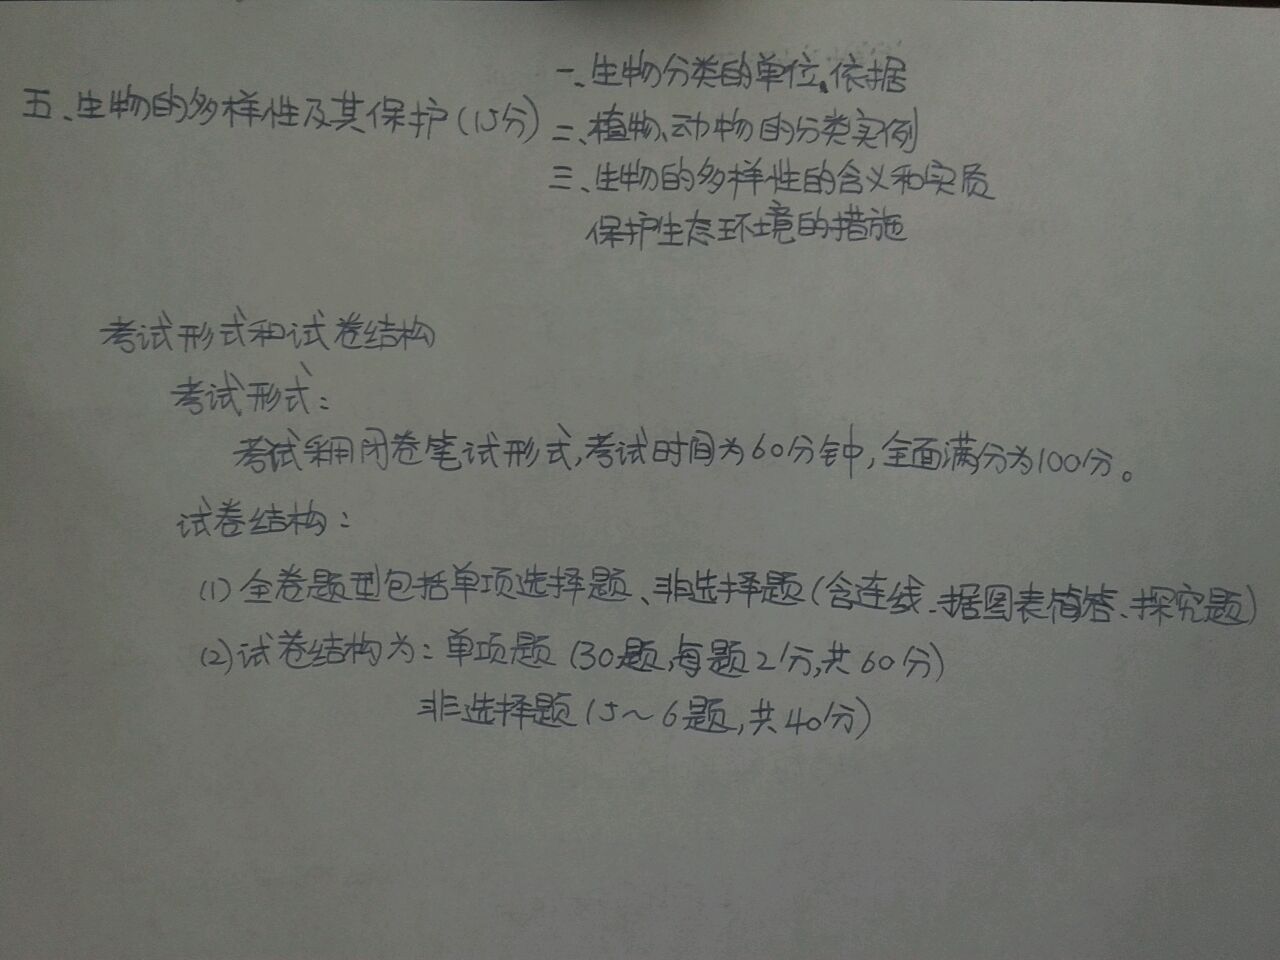 五、生物的多样性及其保护(15分)
一、生物分类的单位、依据
二、植物、动物的分类实例
三、生物的多样性的含义和实质
保护生态环境的措施
考试形式和试卷结构
考试形式:
考试采用闭卷笔试形式,考试时间为60分钟,全面满分为100分。
试卷结构:
(1)全卷题型包括单项选择题、非选择题(含连线、据图表填答、探究题)
(2)试卷结构为:单项题(30题,每题2分,共60分)
非选择题(5~6题,共40分)